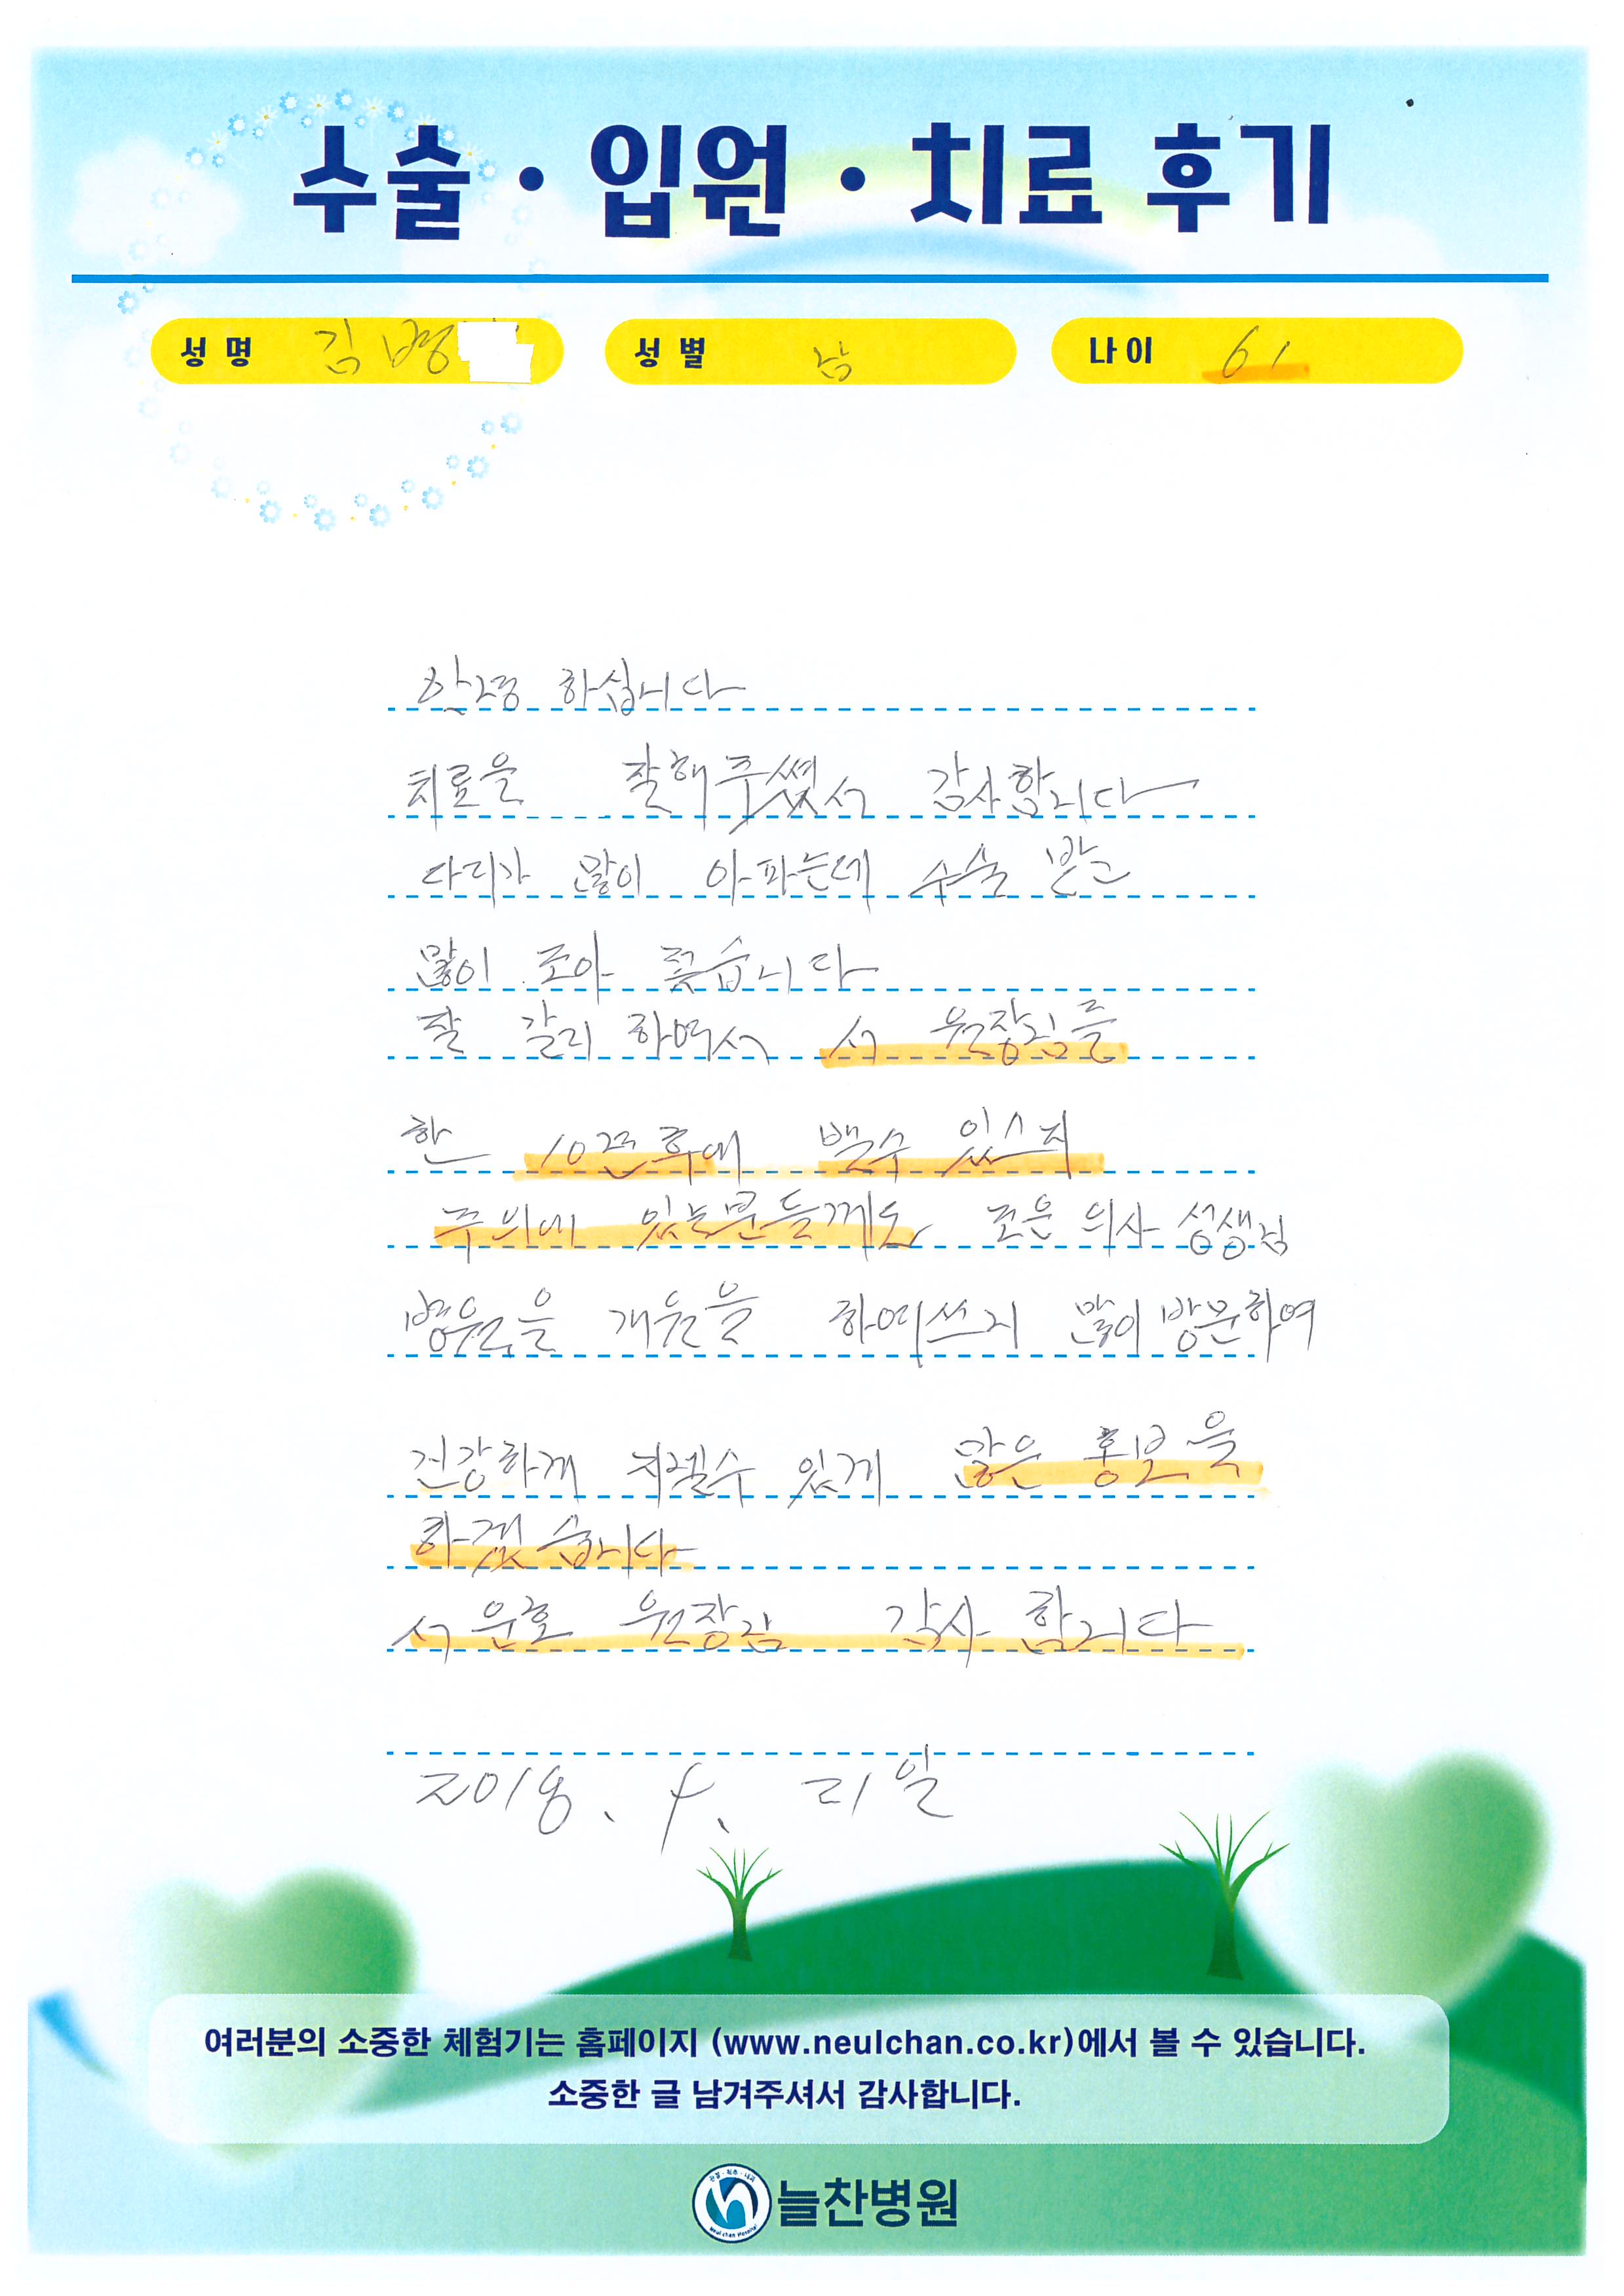 수술 · 입원 · 치료 후기
성 명 김병
성 별 남
나 이 61
안녕 하십니다
치료을 잘해주셨서 감사합니다
다리가 많이 아파는데 수술 받고
많이 조아 졌습니다
잘 갈리 하여서 서 원장님를
한 10년후에 밸수 있스지
주의에 있는분들께도 조은 의사 성생님
병원을 개원을 하여쓰지 많이 방문하여
건강하게 지낼수 있게 많은 홍보을
하겠습니다
서윤호 원장님 감사 합니다
2018. 4. 21일
여러분의 소중한 체험기는 홈페이지 (www.neulchan.co.kr)에서 볼 수 있습니다.
소중한 글 남겨주셔서 감사합니다.
늘찬병원